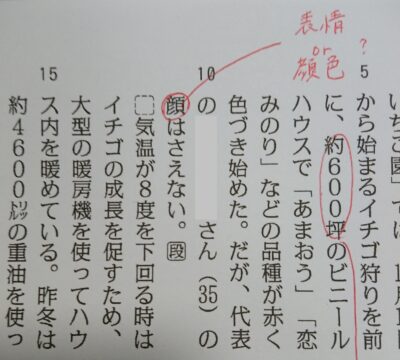 表情
or
顔色?
いちご園」では、1月1
5
から始まるイチゴ狩りを前
に、約600坪のビニール
ハウスで「あまおう」「恋
みのり」などの品種が赤く
色づき始めた。だが、代表
10
の さん(35)の
顔はさえない。段
気温が8度を下回る時は
イチゴの成長を促すため、
大型の暖房機を使ってハウ
15
ス内を暖めている。昨冬は
約4600㍑の重油を使っ